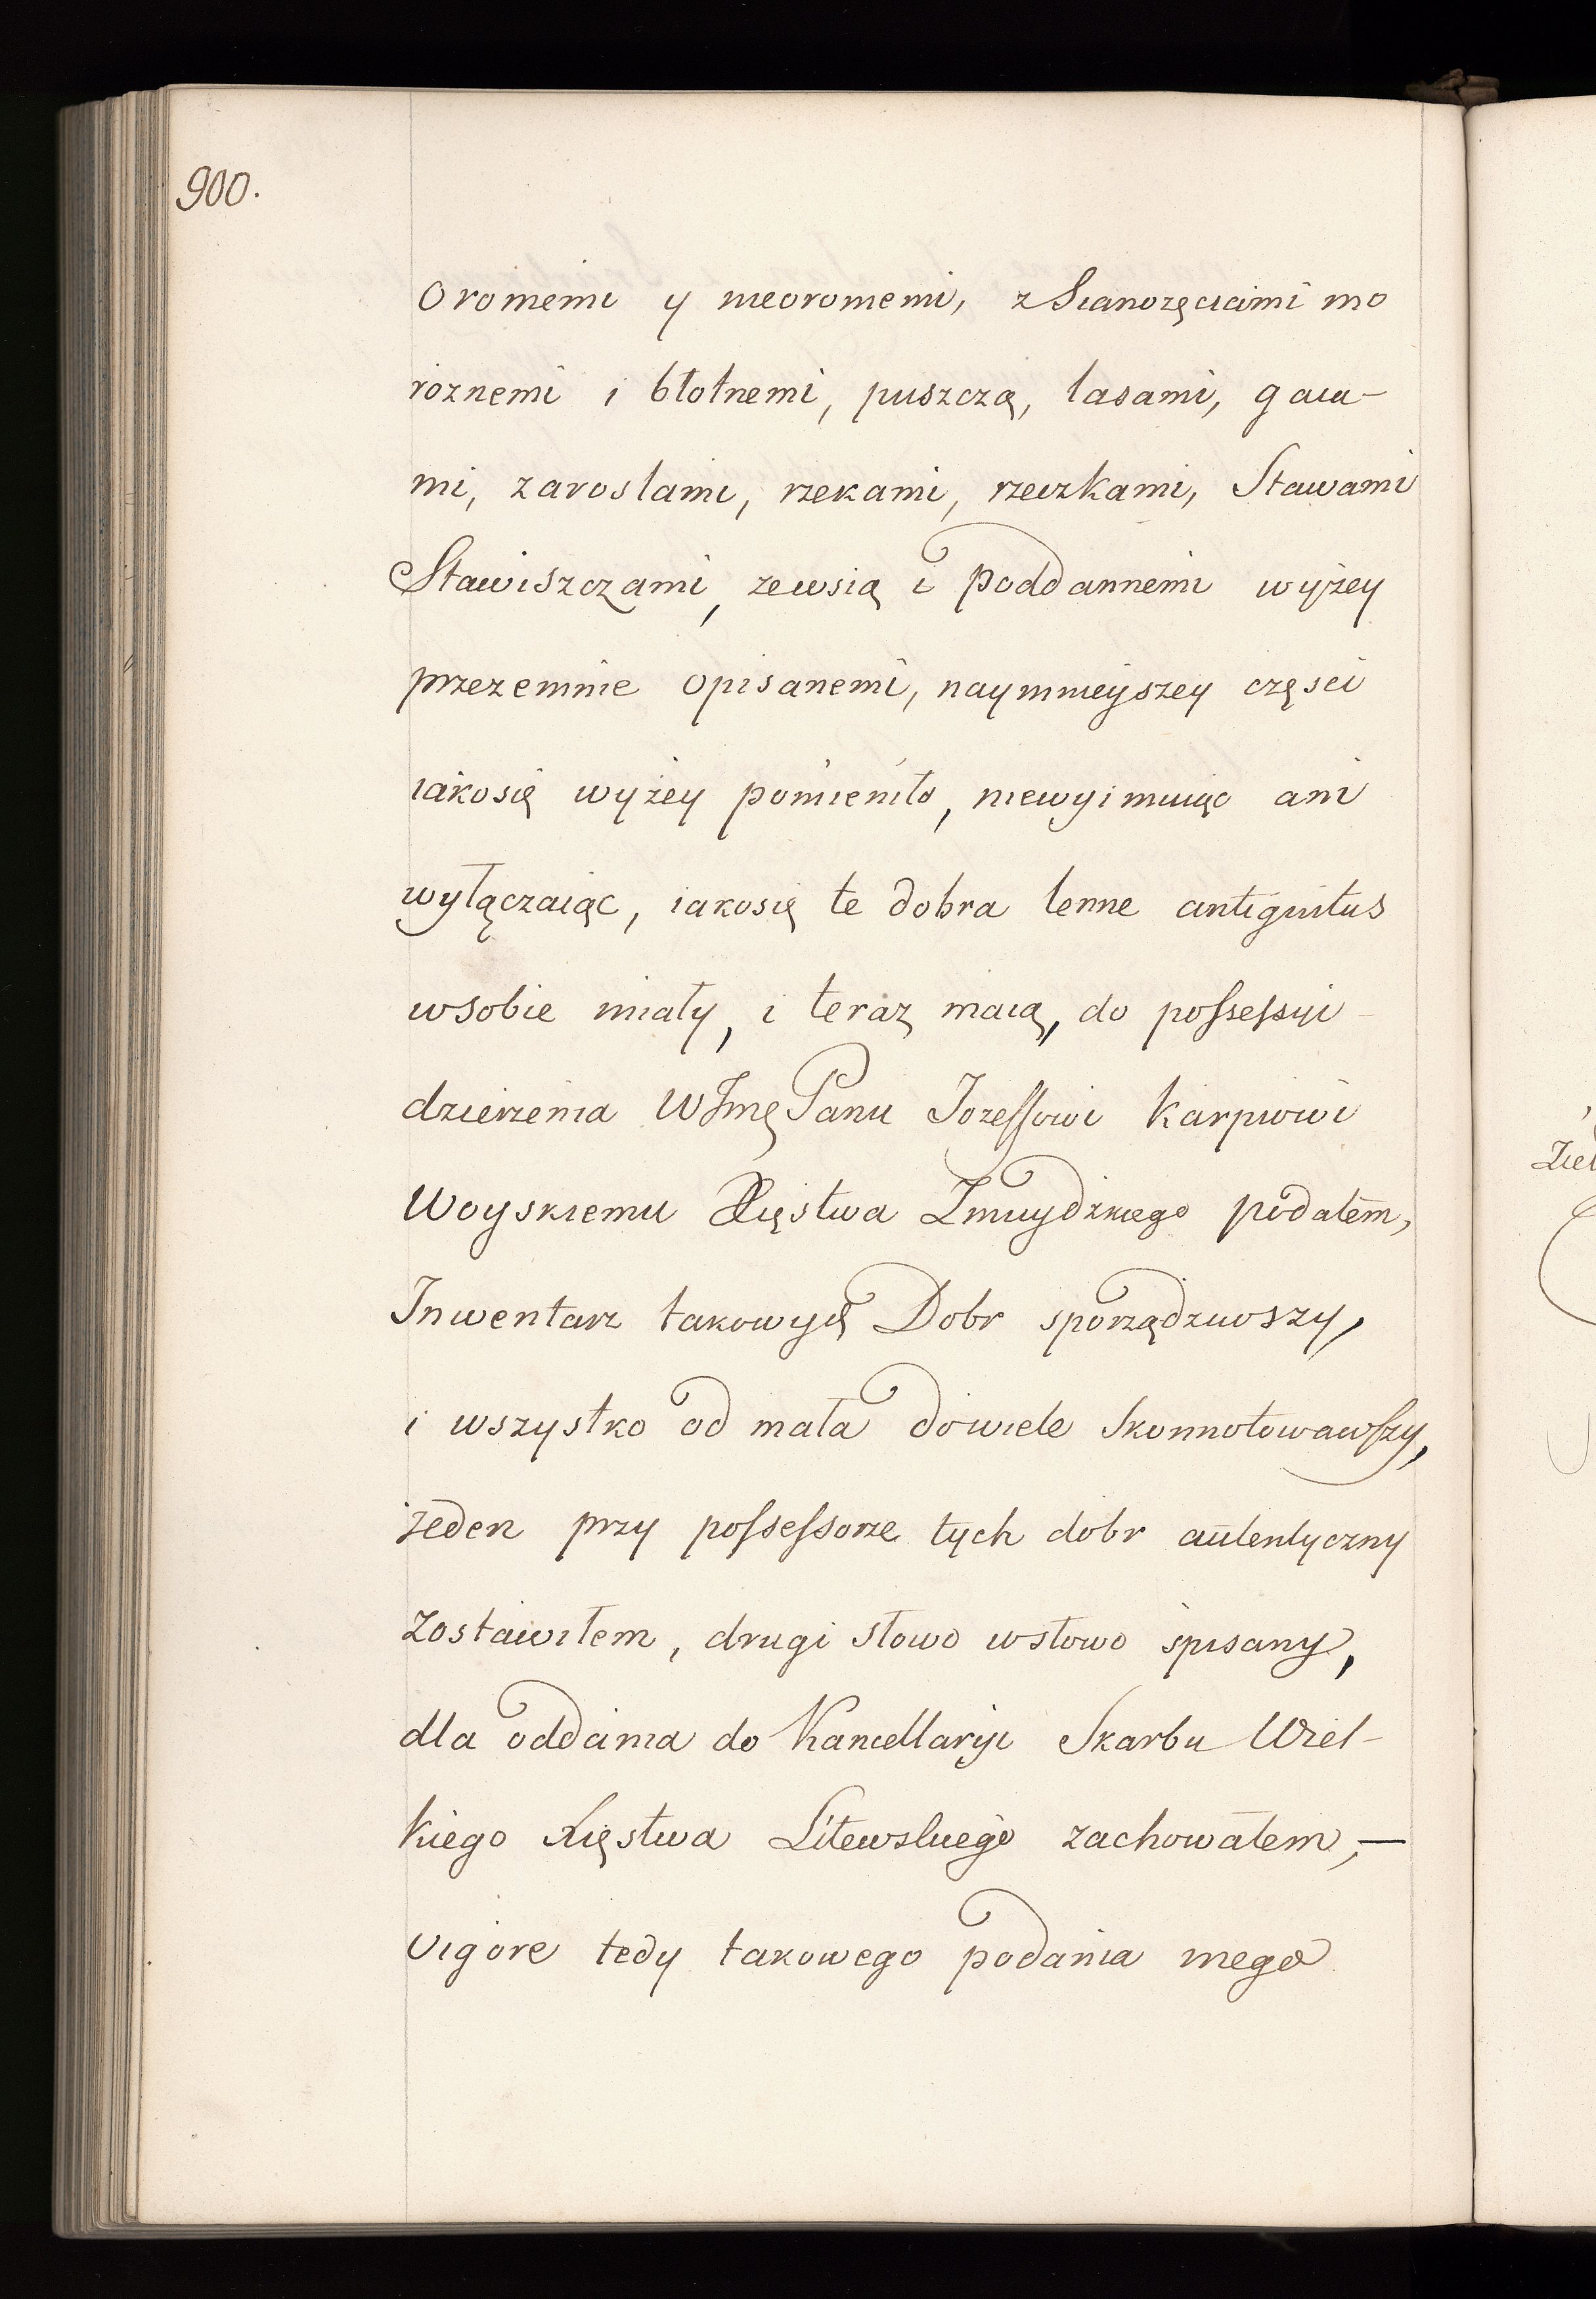 900.
Oromemi y nieoromemi, z Sianożęciami mo
roznemi i błotnemi, puszczą, lasami, gaia-
mi, zaroslami, rzekami, rzeczkami, Stawami
Stawiszczami, zewsią i poddannemi wyżey
przezemnie opisanemi, naymnieyszey częsci
iakosię wyżey pomieniło, niewyimuiąc ani
wyłączaiąc, iakosię te dobra lenne antiquitus
wsobie miały, i teraz maią, do possessyi
dzierzenia WJmę Panu Jozeffowi Karpiowi
Woyskiemu Xięstwa Zmuydzkiego podałem,
Inwentarz takowyc Dobr sporządziwszy,
i wszystko od mała dowiele Skonnotowawszy,
jeden przy possessorze tych dobr autentyczny
Zostawiłem, drugi słowo wsłowo spisany,
dla oddania do Kancellaryi Skarbu Wiel-
kiego Xięstwa Litewskiego zachowałem, —
Vigore tedy takowego podania mego
Ziel